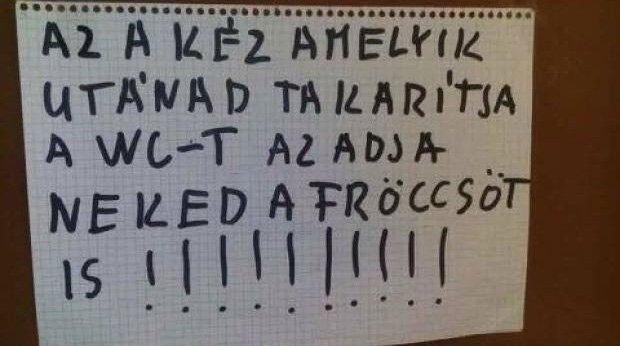 AZ A KÉZ AMELYIK
UTÁNAD TAKARÍTJA
A WC-T AZ ADJA
NEKED A FRÖCCSÖT
IS !!!!!!!!!